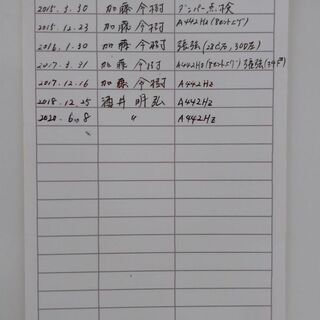 2015.3.30 加藤今樹 ダンパー点検
2015.12.23 加藤今樹 A442Hz(8セントUP)
2016.1.30 加藤今樹 張弦
2017.3.31 加藤今樹 A442Hz 張弦
2017.12.16 加藤今樹 A442Hz
2018.12.25 酒井明弘 A442Hz
2020.6.8 〃 A442Hz